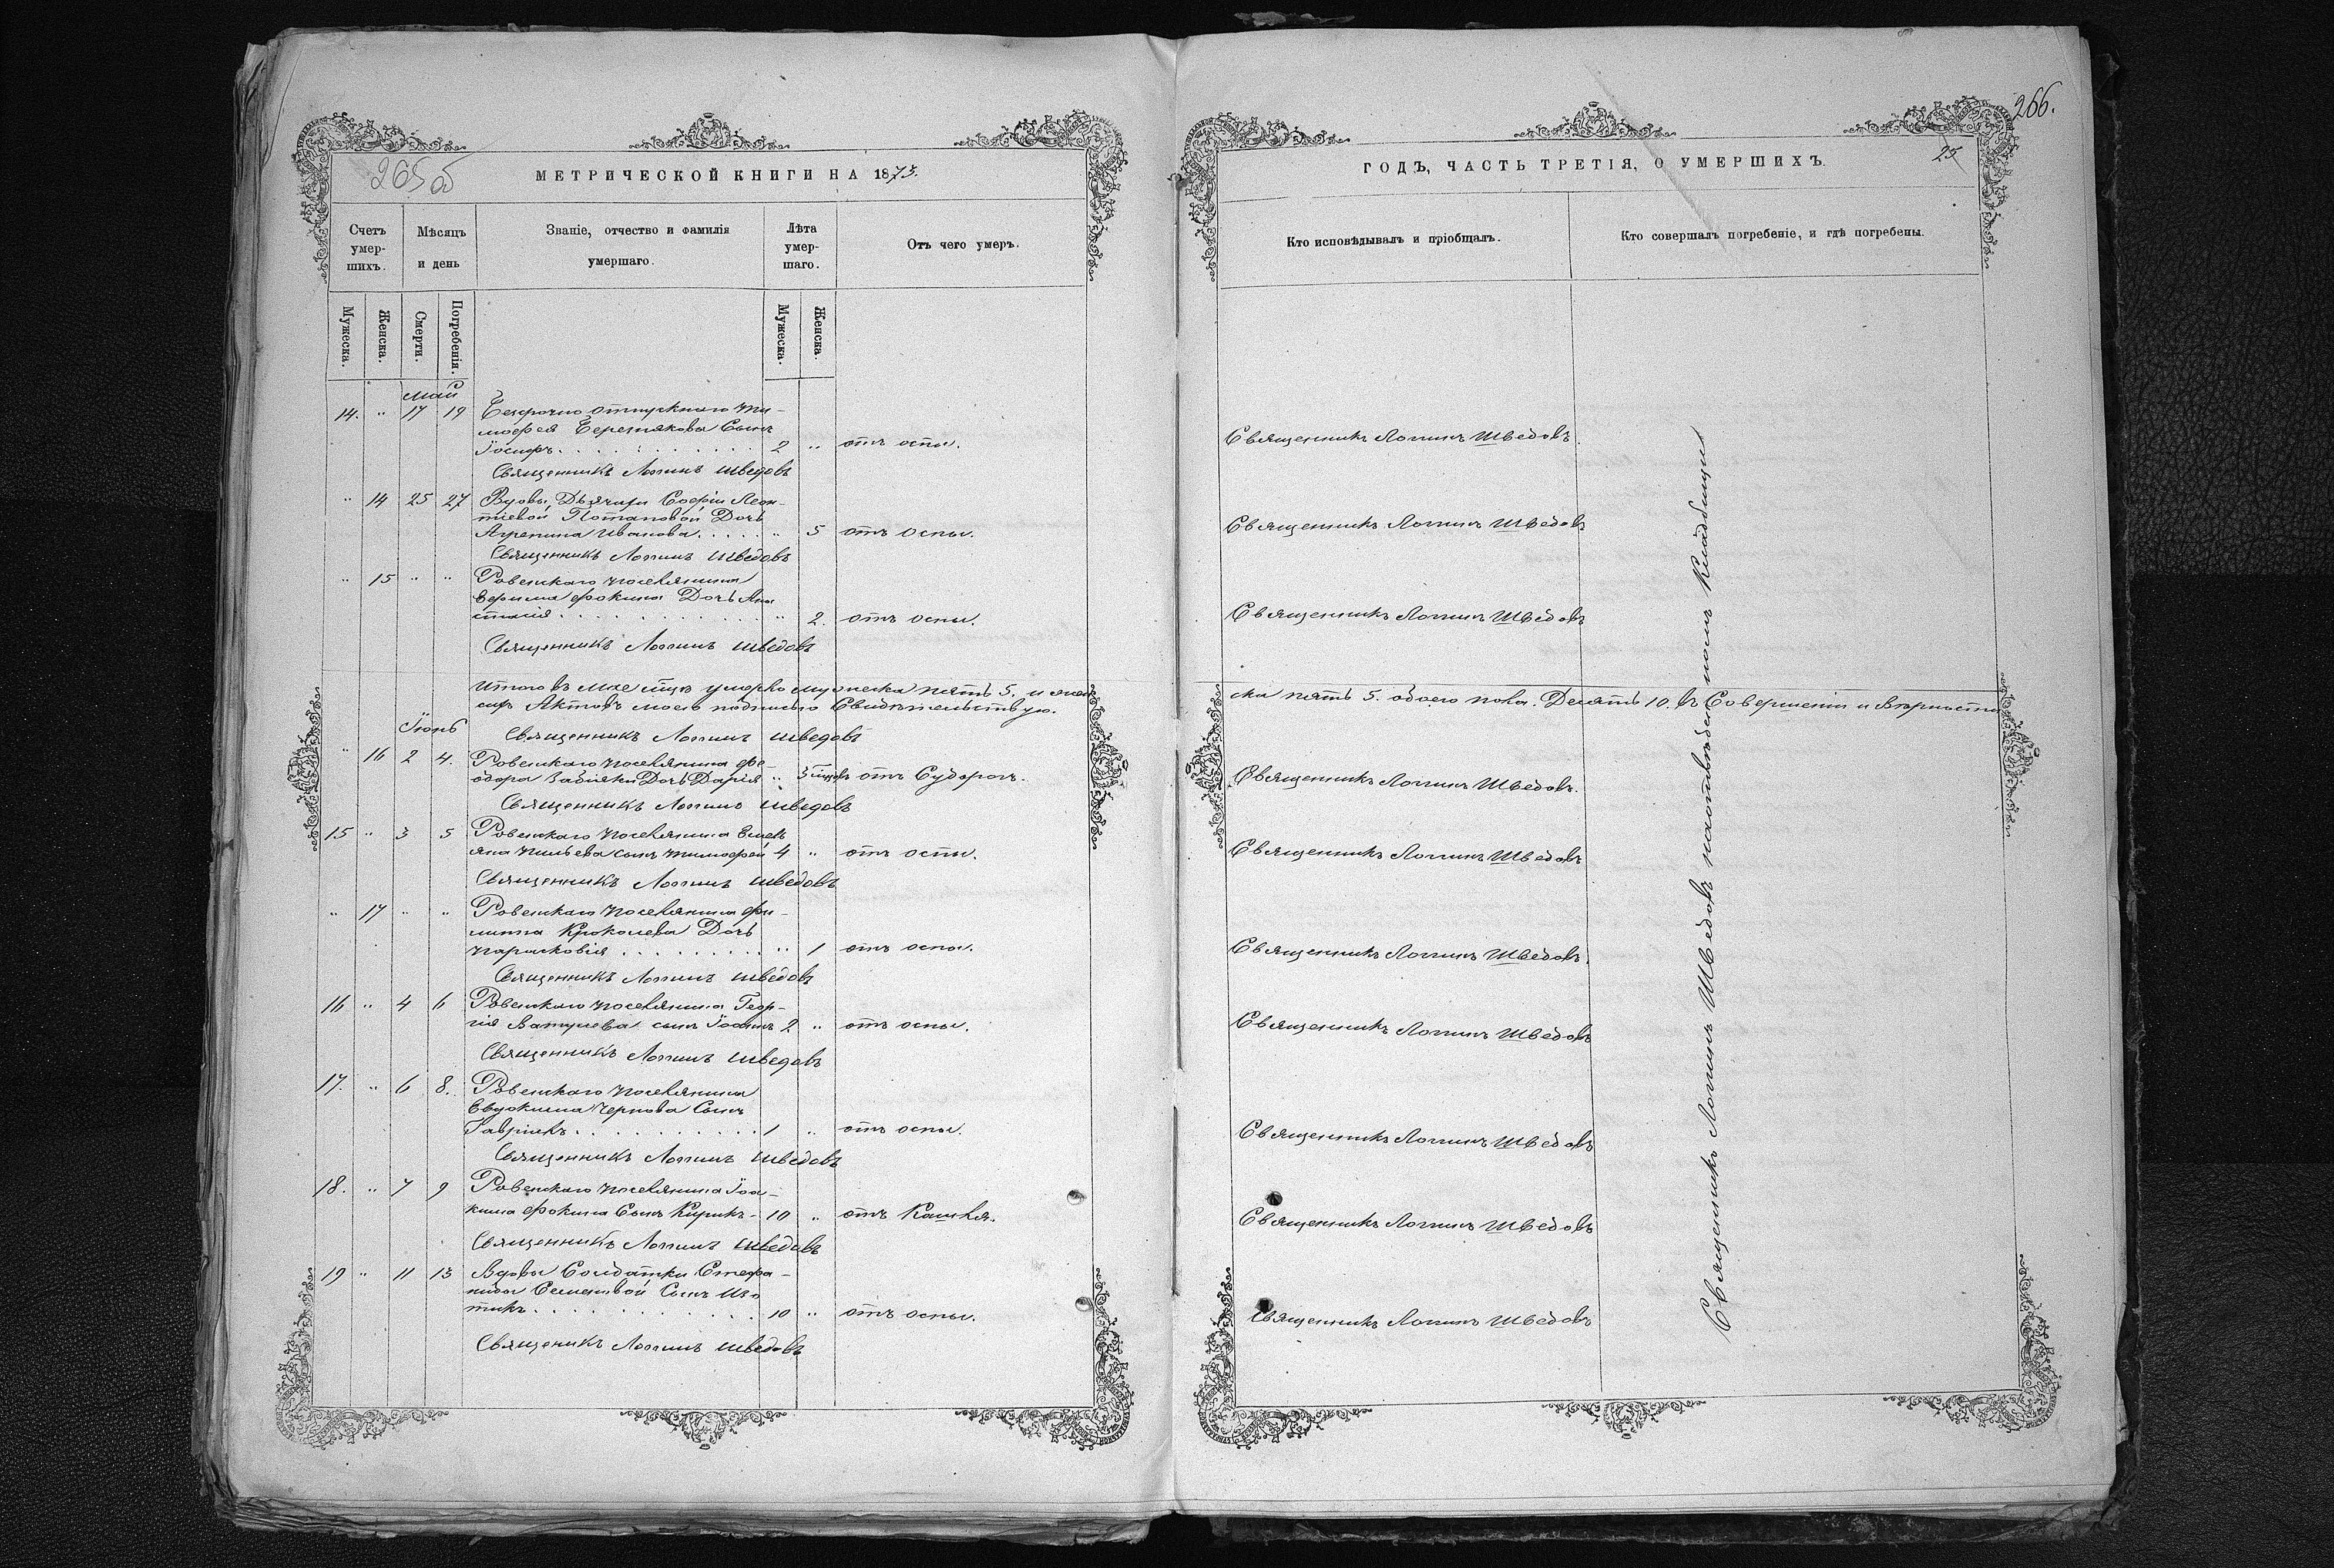 265 об
МЕТРИЧЕСКОЙ КНИГИ НА 1873.
Счетъ умер-шихъ.
Мѣсяцъ и день
Званіе, отчество и фамилія умершаго.
Лѣта умер-шаго.
Отъ чего умеръ.
Мужеска.
Женска.
Смерти.
Погребенія.
Мужеска.
Женска.
Май
14. " 17 19 Безсрочно отпускнаго Ти-
моѳея Серемякова Сынъ
Іосифъ. 2 " отъ оспы.
Священникъ Логинъ Шведовъ
" 14 25 27 Вдовы Дьячихи Софіи Леон-
тіевой Потаповой Дочь
Агрепина Иванова. " 5 отъ оспы.
Священникъ Логинъ Шведовъ
" 15 " " Ровенскаго поселянина
Ѳокина Дочь Ана-
стасія " 2. отъ оспы.
Священникъ Логинъ Шведовъ
Итого въ мае м-цѣ умерло мужеска пять 5. и жен-
сихъ Актовъ моею подписью Свидѣтельствую.
Священникъ Логинъ Шведовъ
Іюнь
" 16 2 4. Ровенскаго поселянина Ѳе-
одора Забіяки Дочь Дарія " 3 отъ Судорогъ.
Священникъ Логинъ Шведовъ
15 " 3 5 Ровенскаго поселянина Емель-
яна сынъ Тимоѳей 4 " отъ оспы.
Священникъ Логинъ Шведовъ
" 17 " " Ровенскаго поселянина Фи-
липпа Крокалева Дочь
Парасковія " 1 отъ оспы.
Священникъ Логинъ Шведовъ
16 " 4 6 Ровенскаго поселянина Геор-
гія сынъ Іоаннъ 2 " отъ оспы.
Священникъ Логинъ Шведовъ
17. " 6 8. Ровенскаго поселянина
Евдокима Чернова Сынъ
Гавріилъ. 1 " отъ оспы.
Священникъ Логинъ Шведовъ
18. " 7 9 Ровенскаго поселянина Іоа-
кима Ѳокина Сынъ Кирилъ 10 " отъ Кашля.
Священникъ Логинъ Шведовъ
19 " 11 13 Вдовы Солдатки Стефа-
ниды Семеновой Сынъ Изо-
тикъ. 10 " отъ оспы.
Священикъ Логинъ Шведовъ
266.
25
ГОДЪ, ЧАСТЬ ТРЕТІЯ, О УМЕРШИХЪ.
Кто исповѣдывалъ и пріобщалъ.
Кто совершалъ погребеніе, и гдѣ погребены.
Священникъ Логинъ Шведовъ.
Священникъ Логинъ Шведовъ
Священникъ Логинъ Шведовъ
ска пять 5. обоего пола. Десять 10. въ Совершеніи и Вѣрности
Священникъ Логинъ Шведовъ.
Священникъ Логинъ Шведовъ
Священникъ Логинъ Шведовъ.
Священникъ Логинъ Шведовъ
Священникъ Логинъ Шведовъ
Священникъ Логинъ Шведовъ
Священникъ Логинъ Шведовъ
Священникъ Логинъ Шведовъ на отведенномъ Кладбищи